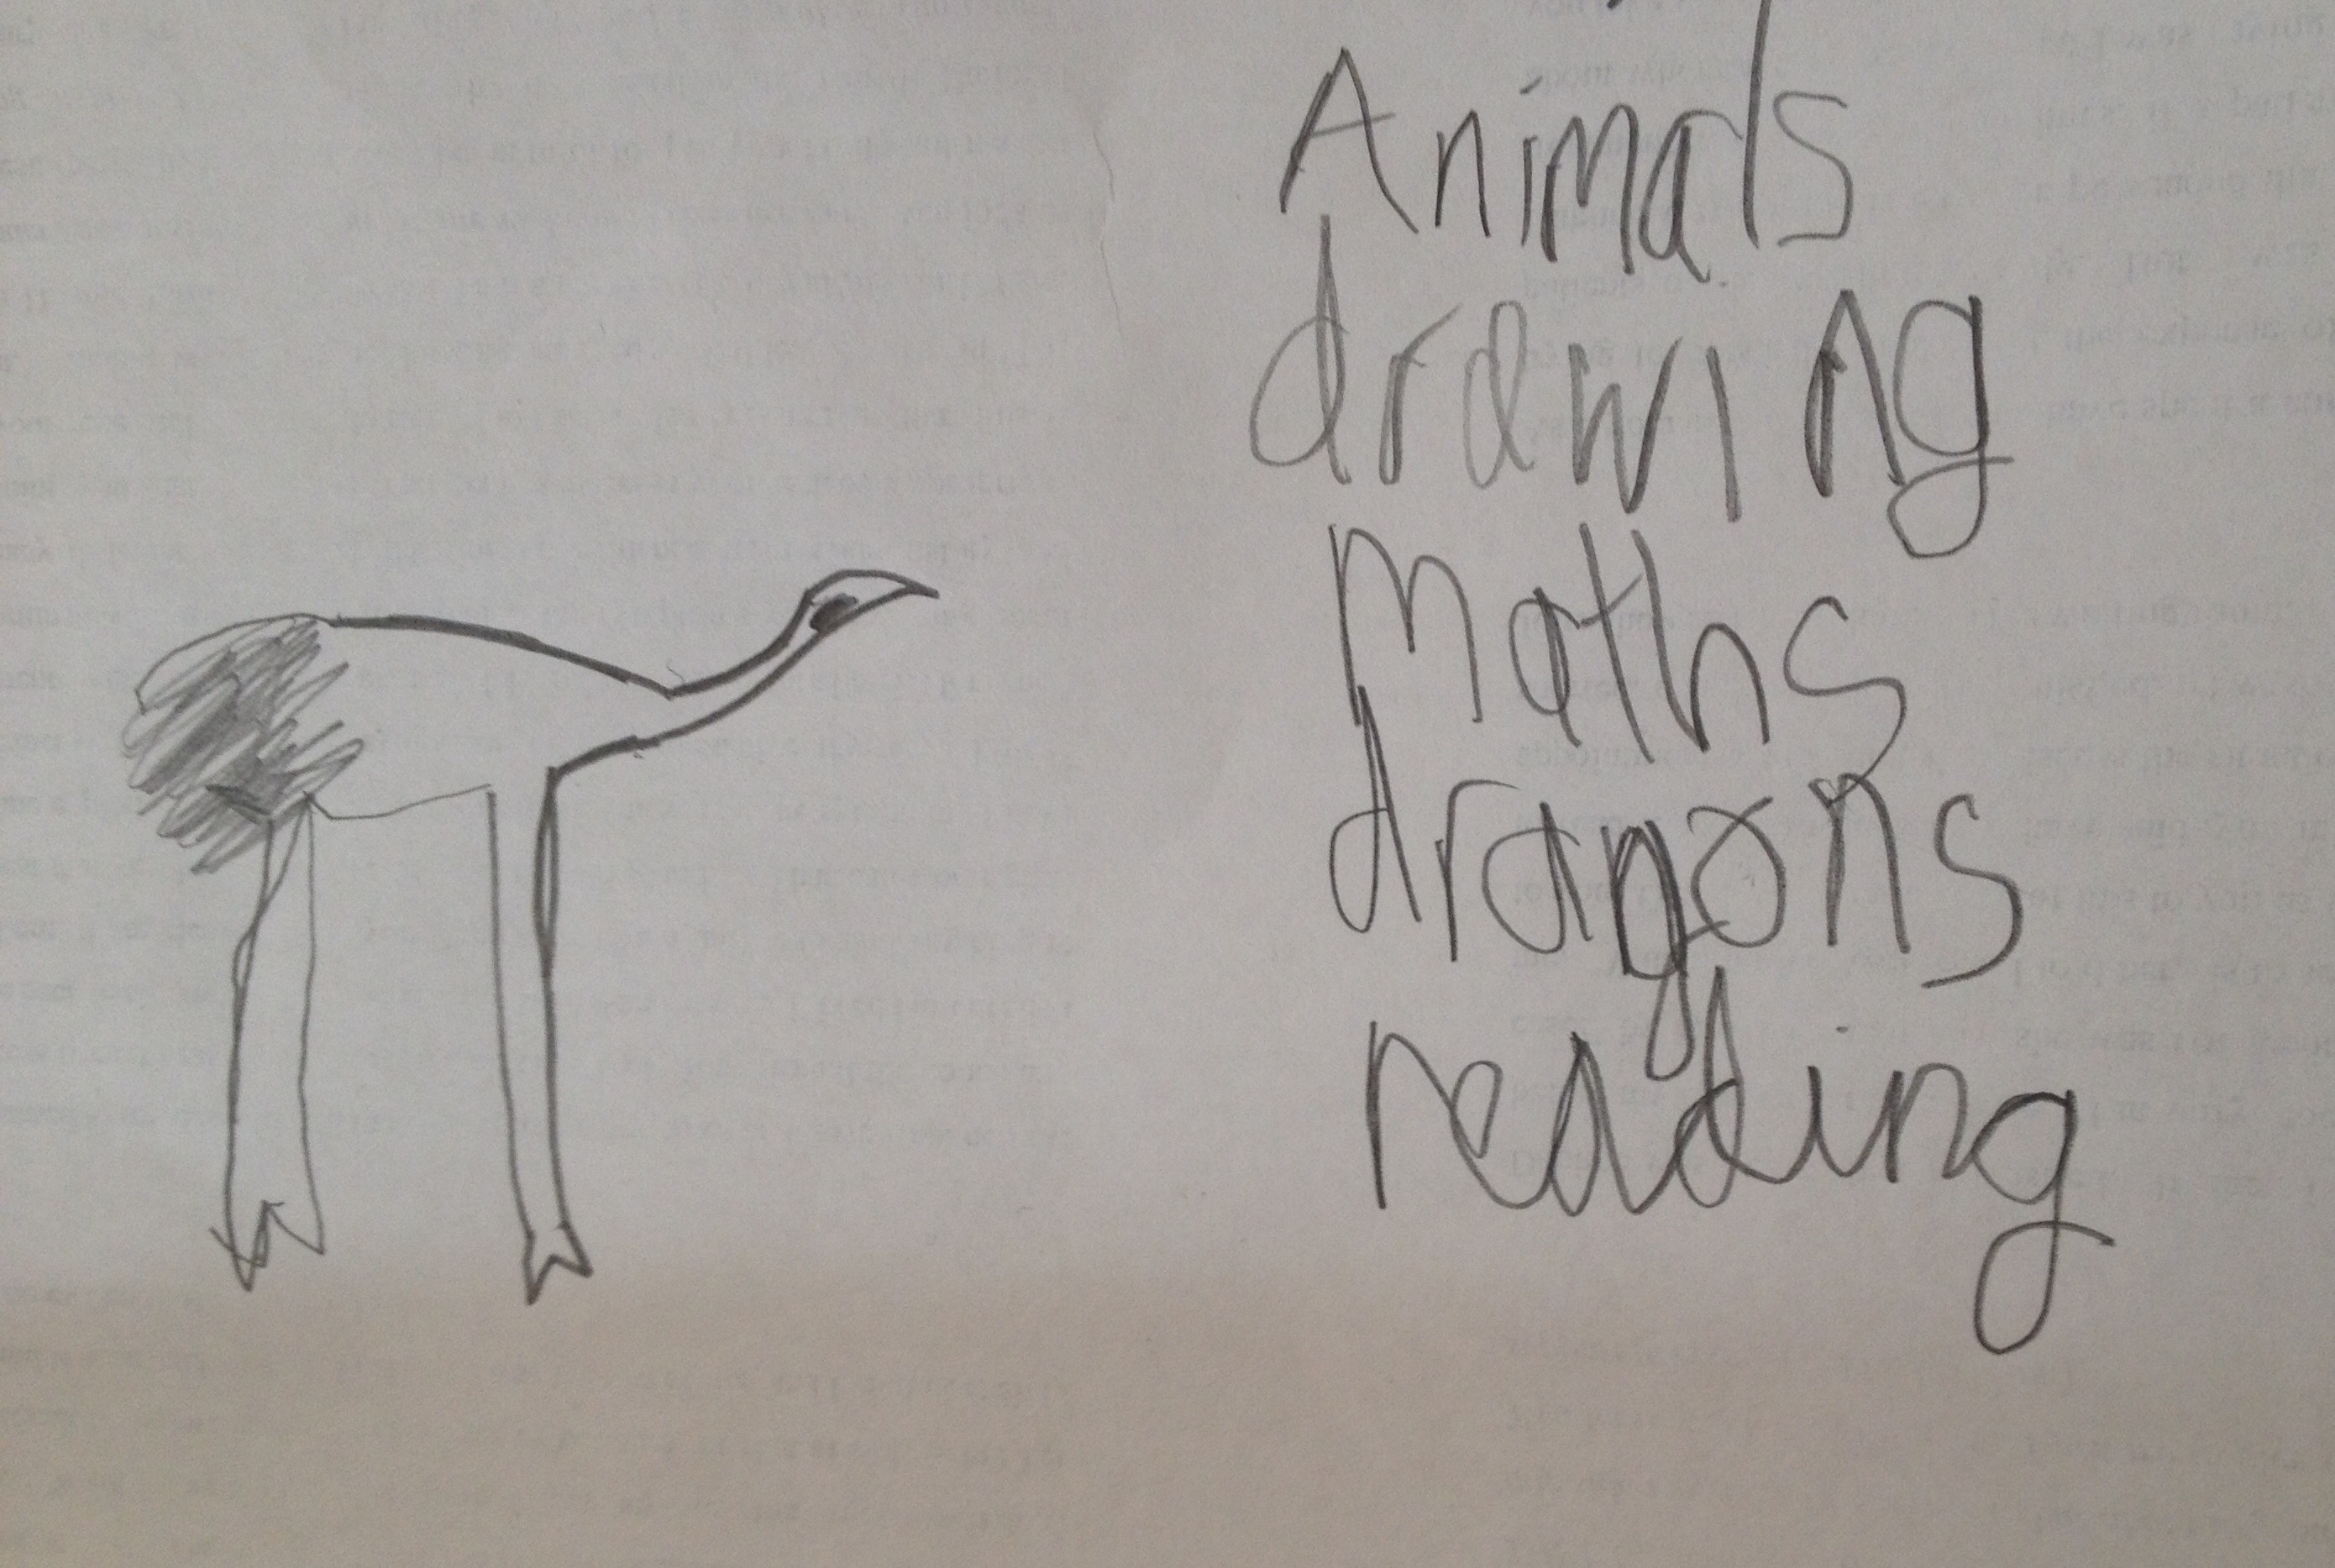 Animals
drawing
Maths
dragons
reading